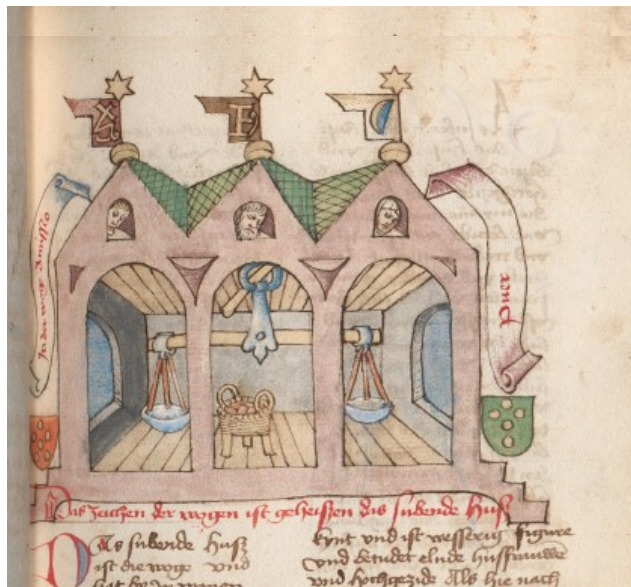 E
In der woge Amissio
Puer
Das zaichen der wogen ist geheissen das subende Huß
Das subende Huß
ist die woge und
kynt und ist wesserig figure
und betudet elude husfrauwe
und hochgezide Als hie nach